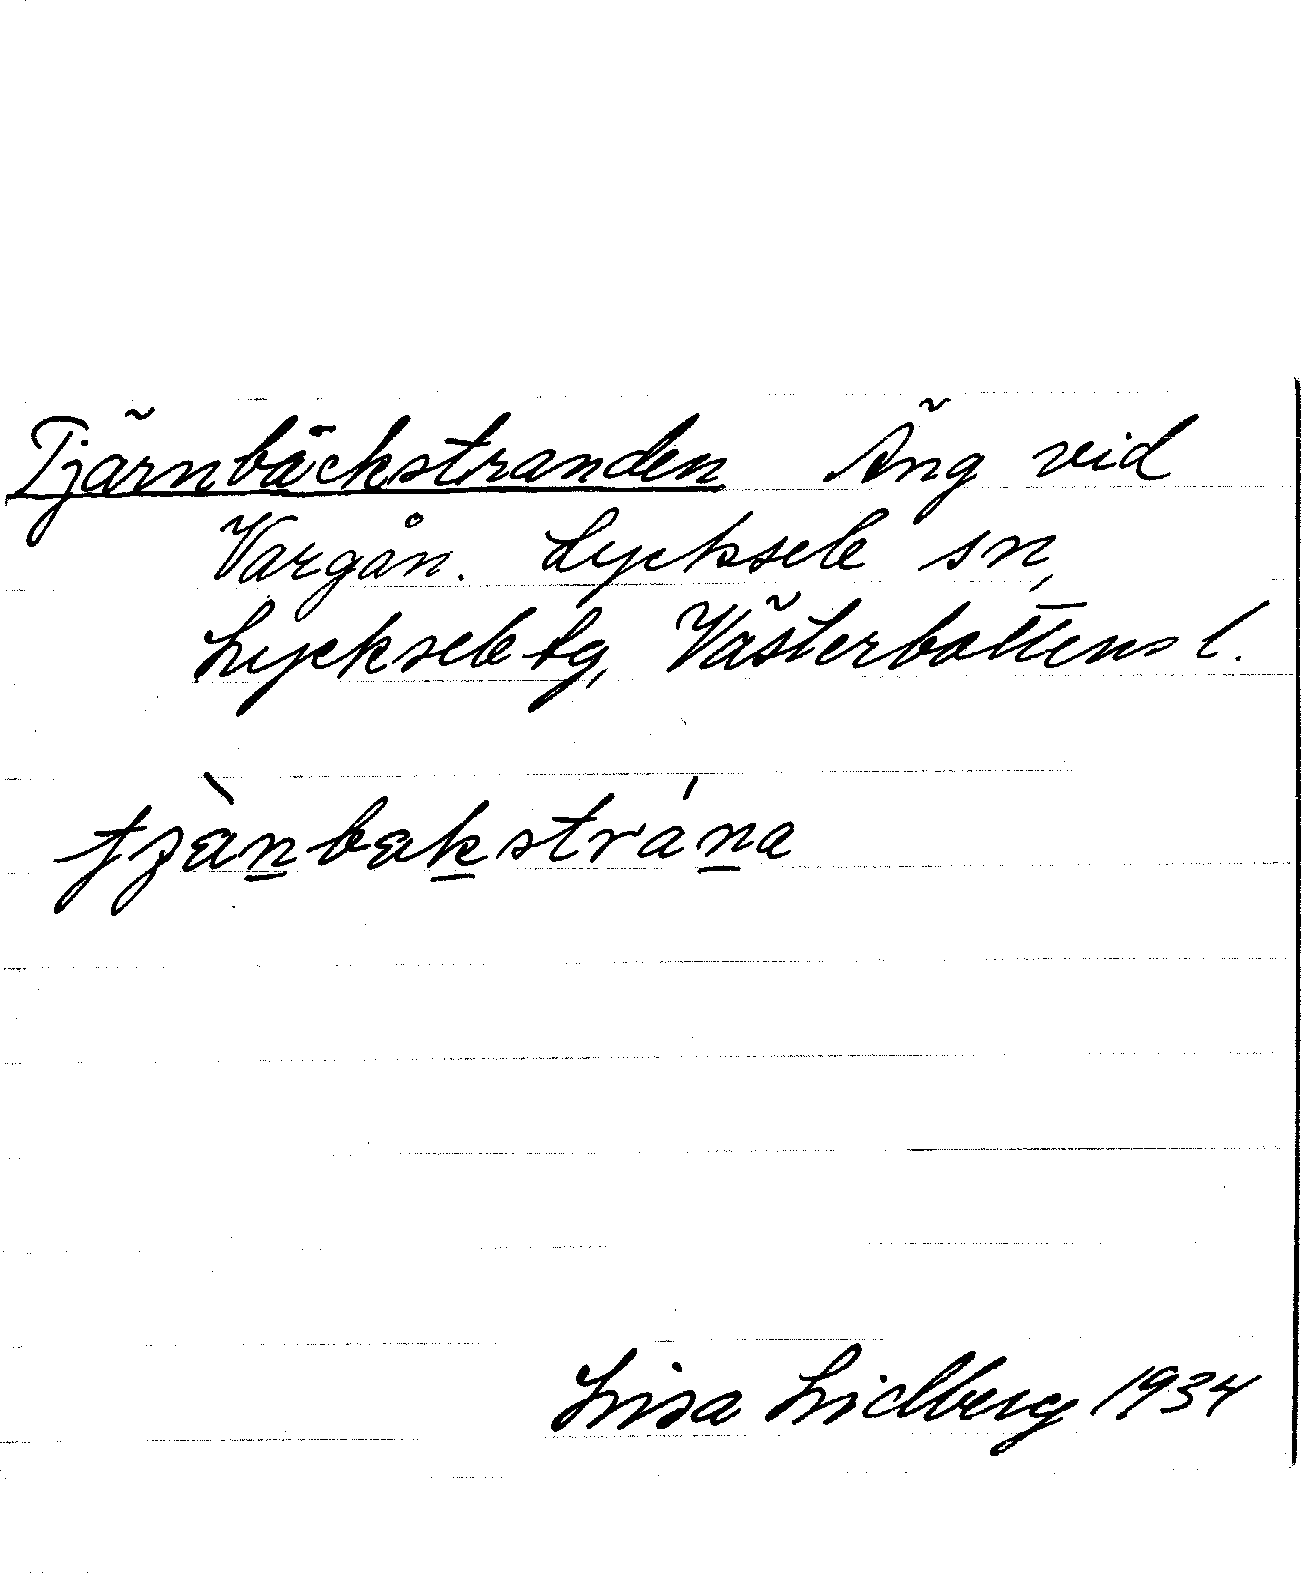 Tjärnbäckstranden Äng vid
Vargån. Lycksele sn,
Lycksele tg, Västerbottens l.
tjànbakstrána
Lisa Lidberg 1934